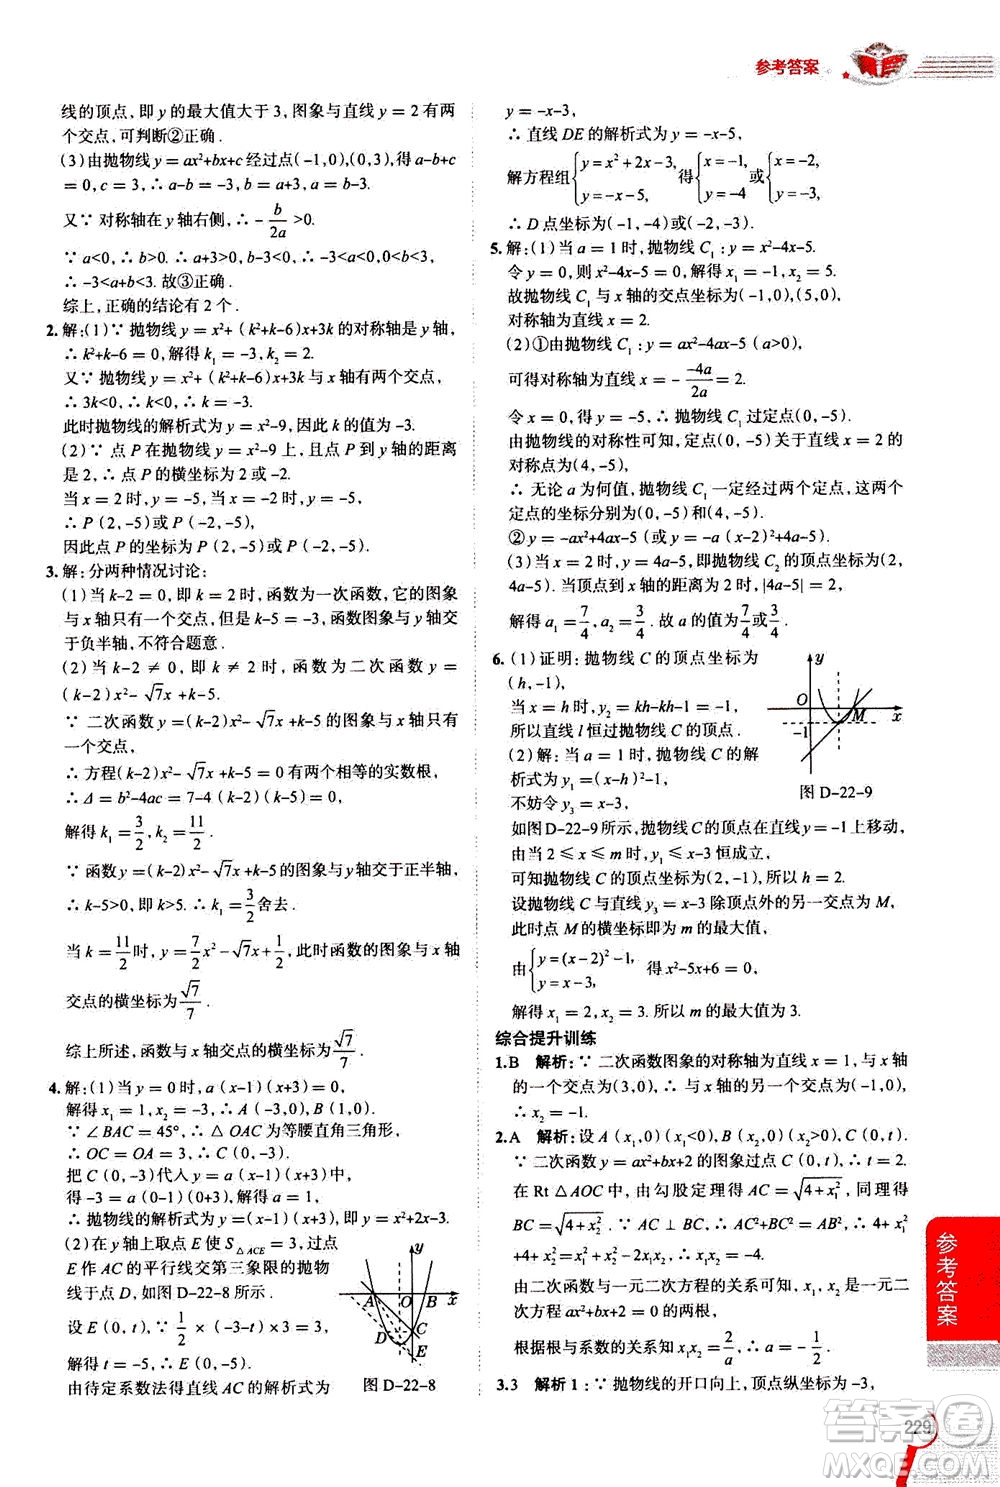 参考答案
线的顶点，即 y 的最大值大于 3，图象与直线 y = 2 有两
个交点，可判断②正确．
(3)由抛物线 y = ax²+bx+c 经过点(-1,0),(0,3),得 a-b+c
= 0,c = 3,∴ a-b = -3,b = a+3,a = b-3.
又∵ 对称轴在 y 轴右侧,∴ -b/2a >0.
∵ a<0,∴ b>0. ∴ a+3>0,∴ a>-3.
∴ -3<a<0. ∴ 0<b<3. 故③正确．
综上,正确的结论有 2 个．
2. 解:(1)∵ 抛物线 y = x²+ (k²+k-6)x+3k 的对称轴是 y 轴,
∴ k²+k-6 = 0,解得 k₁ = -3,k₂ = 2.
又∵ 抛物线 y = x²+ (k²+k-6)x+3k 与 x 轴有两个交点,
∴ 3k<0,∴ k<0,∴ k = -3.
此时抛物线的解析式为 y = x²-9,因此 k 的值为 -3.
(2)∵ 点 P 在抛物线 y = x²-9 上,且点 P 到 y 轴的距离
是 2,∴ 点 P 的横坐标为 2 或 -2.
当 x = 2 时,y = -5,当 x = -2 时,y = -5,
∴ P (2,-5)或 P (-2,-5),
因此点 P 的坐标为(2,-5)或(-2,-5).
3. 解:分两种情况讨论:
(1)当 k-2 = 0,即 k = 2 时,函数为一次函数,它的图象
与 x 轴只有一个交点,但是,函数图象与 y 轴交
于负半轴,不符合题意．
(2)当 k-2 ≠ 0,即 k ≠ 2 时,函数为二次函数 y =
(k-2)x²-√7x +k-5.
∵ 二次函数 y= (k-2)x²-√7x+k-5 的图象与 x 轴只有
一个交点,
∴ 方程(k-2)x²-√7x +k-5 = 0 有两个相等的实数根,
∴ Δ = b²-4ac = 7-4 (k-2)(k-5) = 0,
解得 k₁ = 3/2,k₂ = 11/2.
∵ 函数 y= (k-2)x²-√7x +k-5 的图象与 y轴交于正半轴,
∴ k-5>0,即 k>5. ∴ k₁ = 3/2 舍去．
当 k = 11/2 时,y = 7/2 x²-√7x+1/2,此时函数的图象与 x 轴
交点的横坐标为 √7/7 .
综上所述,函数与 x 轴交点的横坐标为 √7/7 .
4. 解:(1)当 y = 0 时,a (x-1)(x+3) = 0,
解得 x₁ = 1,x₂ = -3,∴ A (-3,0),B (1,0).
∵ ∠ BAC = 45°,∴ △ OAC 为等腰直角三角形,
∴ OC = OA = 3,∴ C (0,-3).
把 C (0,-3)代入 y = a (x-1)(x+3)中,
得 -3 = a (0-1)(0+3),解得 a = 1.
∴ 抛物线的解析式为 y = (x-1)(x+3),即 y = x²+2x-3.
(2)在 y 轴上取点 E 使 S△ACE = 3,过点
E 作 AC 的平行线交第三象限的抛物
线于点 D,如图 D-22-8 所示．
设 E (0,t),∴ 1/2 × (-3-t)×3 = 3,
解得 t = -5,∴ E (0,-5).
由待定系数法得直线 AC 的解析式为
y A O B x C D E
图 D-22-8
y = -x-3,
∴ 直线 DE 的解析式为 y = -x-5,
解方程组{y = x²+2x-3, y = -x-5, 得{x = -1, y = -4 或{x = -2, y = -3.
∴ D 点坐标为(-1,-4)或(-2,-3).
5. 解:(1)当 a = 1 时,抛物线 C₁:y = x²-4x-5.
令 y = 0,则 x²-4x-5 = 0,解得 x₁ = -1,x₂ = 5.
故抛物线 C₁ 与 x 轴的交点坐标为(-1,0),(5,0),
对称轴为直线 x = 2.
(2)①由抛物线 C₁:y = ax²-4ax-5 (a>0)
可得对称轴为直线 x = - -4a/2a = 2.
令 x = 0,得 y = -5. ∴ 抛物线 C₁ 过定点(0,-5).
由抛物线的对称性可知,定点(0,-5)关于直线 x = 2 的
对称点为(4,-5),
∴ 无论 a 为何值,抛物线 C₁ 一定经过两个定点,这两个
定点的坐标分别为(0,-5)和(4,-5).
②y = -ax²+4ax-5 (或 y = -a (x-2)²+4a-5).
(3)当 x = 2 时,y = 4a-5,即抛物线 C₂ 的顶点坐标为(2,
4a-5). 当顶点到 x 轴的距离为 2 时,|4a-5|= 2,
解得 a₁ = 7/4,a₂ = 3/4 . 故 a 的值为 7/4 或 3/4 .
6. (1)证明:抛物线 C 的顶点坐标为
(h,-1),
当 x = h 时,y₂ = kh-kh-1 = -1,
所以直线 l 恒过抛物线 C 的顶点．
(2)解:当 a = 1 时,抛物线 C 的解
析式为 y₁ = (x-h)²-1,
不妨令 y₃ = x-3,
y O M x -1
图 D-22-9
如图 D-22-9 所示,抛物线 C的顶点在直线 y= -1上移动,
由当 2 ≤ x ≤ m 时,y₁ ≤ x-3 恒成立,
可知抛物线 C 的顶点为(2,-1),∴ h = 2.
设抛物线 C与直线 y₃ = x-3 除顶点外的另一交点为 M,
此时点 M 的横坐标即为 m 的最大值,
由{y = (x-2)²-1, y = x-3, 得 x²-5x+6 = 0,
解得 x₁ = 2,x₂ = 3. 所以 m 的最大值为 3.
综合提升训练
1.B 解析:∵ 二次函数图象的对称轴为直线 x = 1,与 x 轴
的一个交点为(3,0),∴ 与 x 轴的另一个交点为(-1,0),
∴ x₂ = -1.
2.A 解析:设 A (x₁,0)(x₁<0),B (x₂,0)(x₂>0),C (0,t),
∵ 二次函数 y = ax²+bx+2 的图象过点 C (0,t),∴ t = 2.
在 Rt △AOC 中,由勾股定理得 AC = √4+x₁²,同理可得
BC = √4+x₂² . ∵ AC ⊥ BC,∴ AC²+BC² = AB²,∴ 4+ x₁²
+4+ x₂² = x₁²-2x₁x₂+x₂²,∴ x₁x₂ = -4.
由二次函数与一元二次方程的关系可知,x₁,x₂是一元二
次方程 ax²+bx+2 = 0 的两根,
根据根与系数的关系知 x₁x₂ = 2/a,∴ 2/a = -4,∴ a = -1/2 .
3.3 解析 1:∵ 抛物线的开口向上,顶点纵坐标为 -3,
参考答案
229
答案圈
MXQE.COM